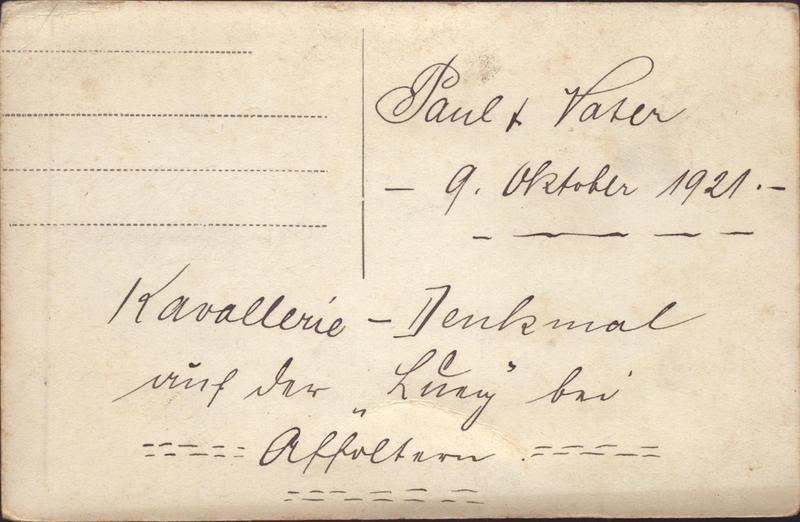 Paul & Vater
– 9. Oktober 1921.–
Kavallerie – Denkmal
auf der „Lueg" bei
Affoltern